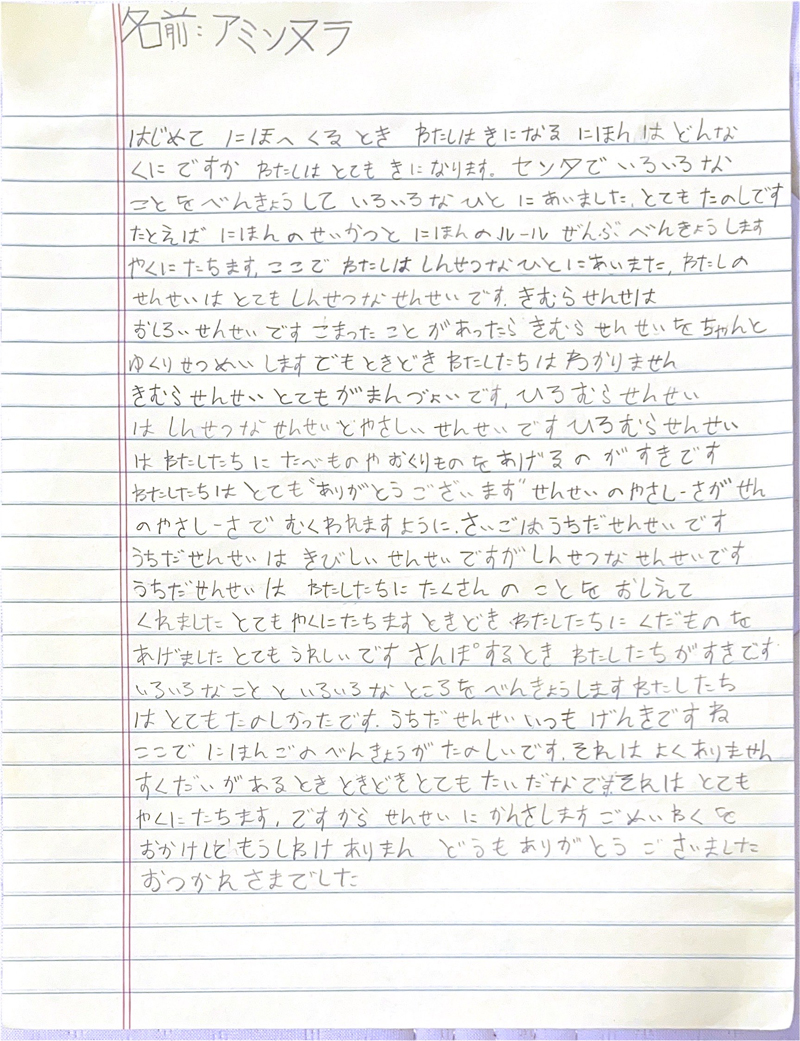 名前：アミンヌラ
はじめて にほへ くる とき わたしは きになる にほん は どんな
くに ですか わたしは とても きになります。 センタで いろいろ な
ことを べんきょうして いろいろ な ひと に あいました、とても たのしです
たとえば にほん の せいかつと にほん の ルール ぜんぶ べんきょう します
やくに たちます、ここで わたしは しんせつな ひと に あいまた、わたしの
せんせいは とても しんせつ な せんせい です、きむら せんせは
おしろい せんせい です こまった こと が あったら きむら せんせいを ちゃんと
ゆくり せつめい します でも ときどき わたしたちは わかりません
きむら せんせい とても がまん づよい です、ひろ むら せんせい
は しんせつ な せんせい と やさしい せんせい です ひろむら せんせい
は わたしたち に たべものや おくりもの を あげる の が すき です
わたしたちは とても “ありがとう ござい ます” せんせい の やさし-さが せん
の やさし-さ で むくわれますように、さいごは うちだ せんせい です
うちだ せんせい は きびしい せんせい ですが しんせつ な せんせい です
うちだ せんせい は わたしたちに たくさん の ことを おしえて
くれました とても やくに たち ます ときどき わたしたちに くだもの を
あげました とても うれしい です さんぽ する とき わたしたち が すき です
いろいろ な こと と いろいろ な ところ を べんきょう します わたし たち
は とても たのし かった です、うちだ せんせい いつも げんき です ね
ここで にほんご の べんきょう が たのしい です、それは よく ありません
すくだい が ある とき ときどき とても たいだな です それは とても
やくに たち ます、ですから せんせい に かんさ します ご めい わく を
おかけして もうしわけ ありまん どうも ありがとう ご さいました
おつかれ さま でした